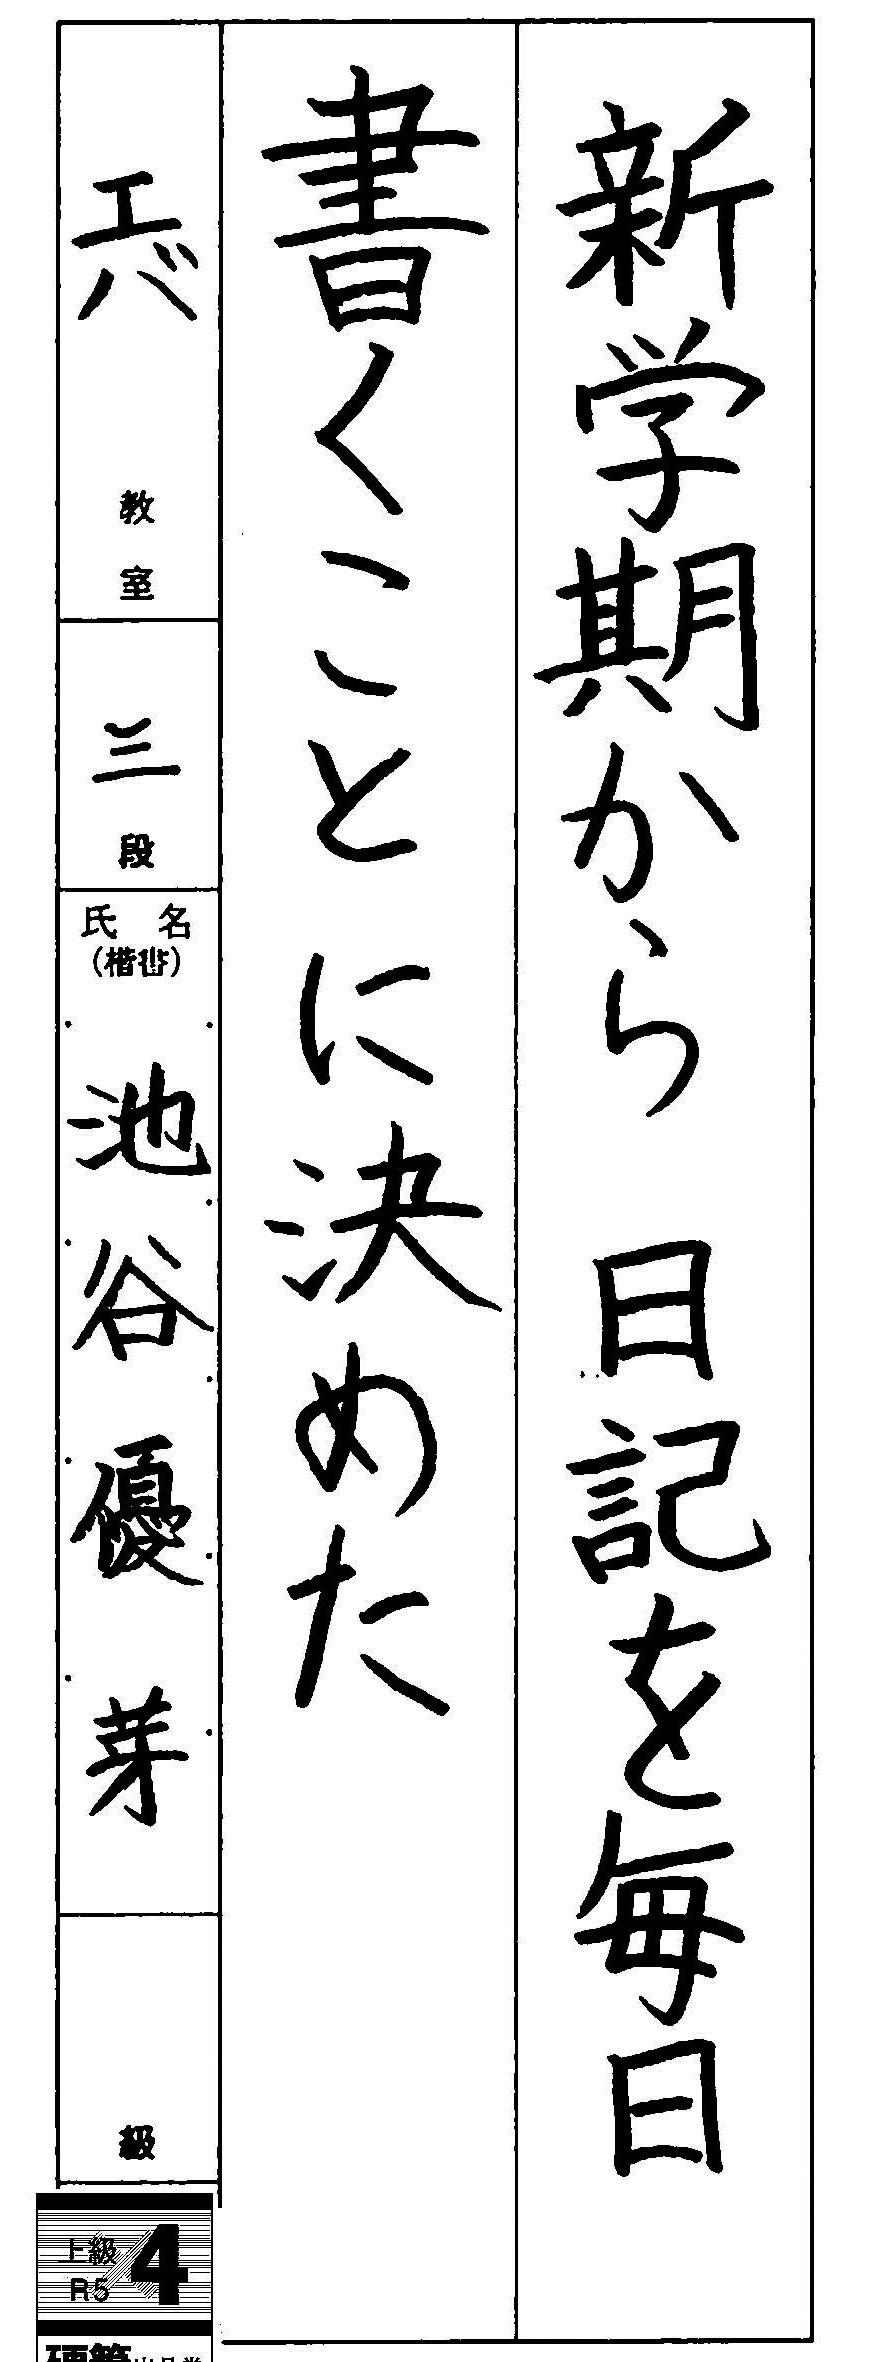 新学期から 日記を毎日
書くことに決めた
エバ 教室
三 段
氏 名
(楷書)
池谷優芽
級
上級
R5
4
硬筆出品券